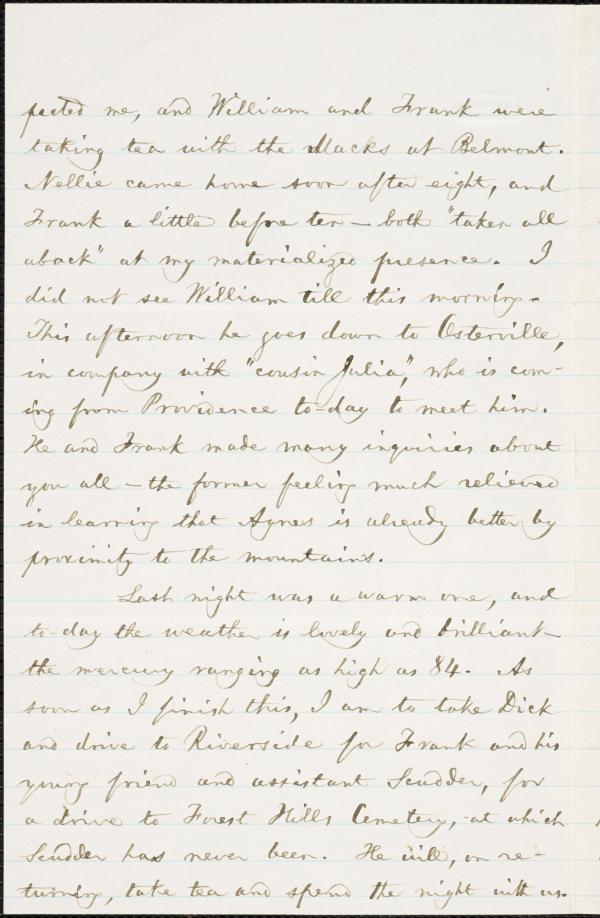 pected me, and William and Frank were
taking tea with the Macks at Belmont.
Nellie came home soon after eight, and
Frank a little before ten — both "taken all
aback" at my materialized presence. I
did not see William till this morning.
This afternoon he goes down to Osterville,
in company with "cousin Julia", who is com-
ing from Providence to-day to meet him.
He and Frank made many inquiries about
you all — the former feeling much relieved
in learning that Agnes is already better by
proximity to the mountains.
Last night was a warm one, and
to-day the weather is lovely and brilliant —
the mercury ranging as high as 84. As
soon as I finish this, I am to take Dick
and drive to Riverside for Frank and his
young friend and assistant Scudder, for
a drive to Forest Hills Cemetery, at which
Scudder has never been. He will, on re-
turning, take tea and spend the night with us.